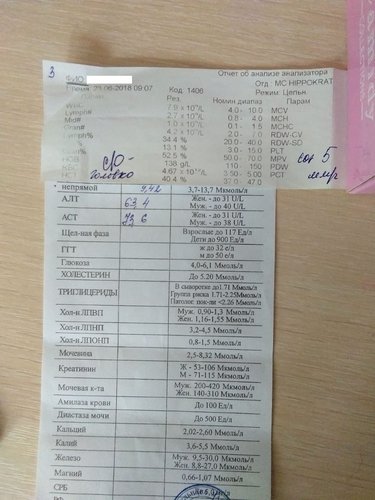 3
ФИО
Отчет об анализе анализатора
Время 23-06-2018 09:07
Код: 1406
Отд.: МС HIPPOKRAT
Режим: Цельн.
Рез. Номнин диапа Парам
WBC 7.9 4.0 - 10.0 MCV
Lymph# 2.7 0.8 - 4.0 MCH
Mid# 1.0 0.1 - 1.5 MCHC
Gran# 4.2 2.0 - 7.0 RDW-CV
Lymph% 34.4 % 20.0 - 40.0 RDW-SD
13.1 % 3.0 - 15.0 PLT
52.5 % 50.0 - 70.0 MPV
HGB 138. g/L 110 - 150 PDW
RBC 4.67 3.50 - 5.00 PCT
HCT 40.4 % 37.0 - 47.0
непрямой 9,42 3,7-13,7 Мкмоль/л
АЛТ 63,4 Жен. - до 31 U/L
Муж. - до 40 U/L
АСТ Жен. - до 31 U/L
Муж. - до 38 U/L
Щел-ная фаза Взрослые до 117 Ед/л
Дети до 900 Ед/л
ГГТ ж до 32 е/л
м до 50 е/л
Глюкоза 4,0-6,1 Ммоль/л
ХОЛЕСТЕРИН До 5.20 Ммоль/л
ТРИГЛИЦЕРИДЫ В сыворотке до1.71 Ммоль/л
Группа риска 1.71-2.25Ммоль/л
Патолог. пок-ли <2.26 Ммоль/л
Хол-н ЛПВП Муж. 0,90-1,3 Ммоль/л
Жен. 1,16-1,55 Ммоль/л
Хол-н ЛПНП 3,2-4,5 Ммоль/л
Хол-н ЛПОНП 0,8-1,5 Ммоль/л
Мочевина 2,5-8,32 Ммоль/л
Креатинин Ж - 53-106 Мкмоль/л
М - 71-115 Мкмоль/л
Мочевая к-та Муж. 200-420 Мкмоль/л
Жен. 140-310 Мкмоль/л
Амилаза крови До 100 Ед/л
Диастаза мочи До 500 Ед/л
Кальций 2,02-2,60 Ммоль/л
Калий 3,6-5,5 Ммоль/л
Железо Муж. 9,5-30,0 Мкмоль/л
Жен. 8,8-27,0 Мкмоль/л
Магний 0,66-1,07 Ммоль/л
СРБ